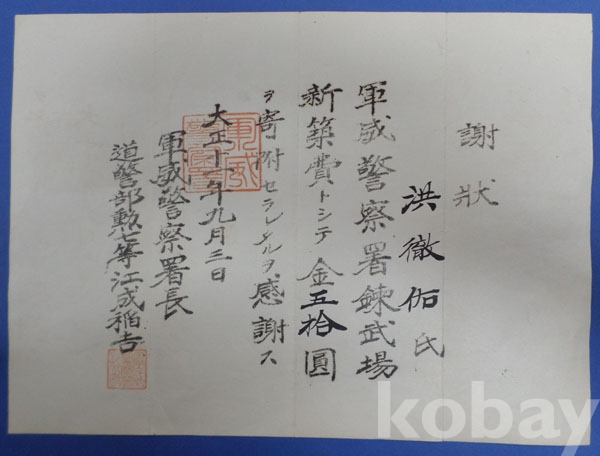 謝狀
洪徹佑氏
軍威警察署鍊武場
新築費トシテ金五拾圓
ヲ寄附セラレタルヲ感謝ス
大正十年九月三日
軍威警察署長
道警部勲七等江成稲吉
kobay